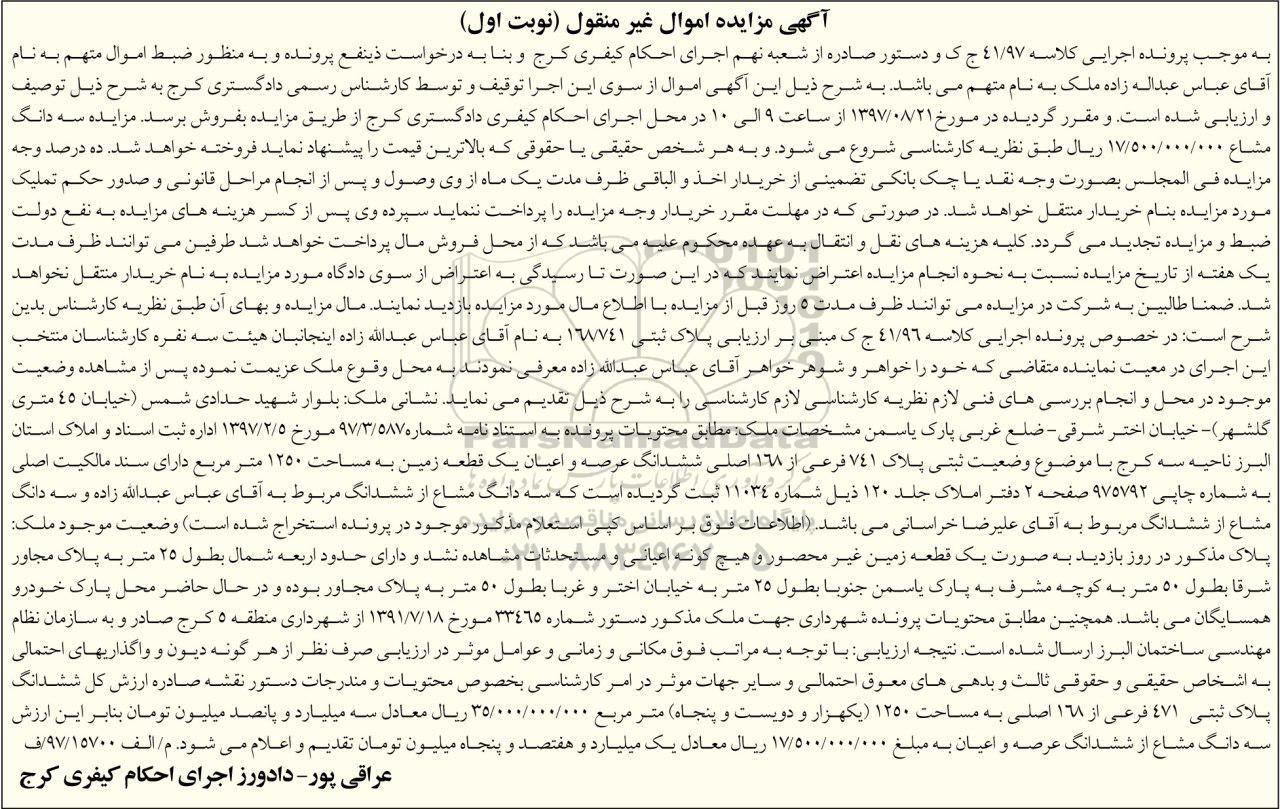 آگهی مزایده اموال غیر منقول (نوبت اول)
به موجب پرونده اجرایی کلاسه ۴۱/۹۷ ج ک و دستور صادره از شعبه نهم اجرای احکام کیفری کرج و بنا به درخواست ذینفع پرونده و به منظور ضبط اموال متهم به نام
آقای عباس عبداله زاده ملک به نام متهم می باشد. به شرح ذیل این آگهی اموال از سوی این اجرا توقیف و توسط کارشناس رسمی دادگستری کرج به شرح ذیل توصیف
و ارزیابی شده است. و مقرر گردیده در مورخ ۱۳۹۷/۰۸/۲۱ از ساعت ۹ الی ۱۰ در محل اجرای احکام کیفری دادگستری کرج از طریق مزایده بفروش برسد. مزایده سه دانگ
مشاع ۱۷/۵۰۰/۰۰۰/۰۰۰ ریال طبق نظریه کارشناسی شروع می شود. و به هر شخص حقیقی یا حقوقی که بالاترین قیمت را پیشنهاد نماید فروخته خواهد شد. ده درصد وجه
مزایده فی المجلس بصورت وجه نقد یا چک بانکی تضمینی از خریدار اخذ و الباقی ظرف مدت یک ماه از وی وصول و پس از انجام مراحل قانونی و صدور حکم تملیک
مورد مزایده بنام خریدار منتقل خواهد شد. در صورتی که در مهلت مقرر خریدار وجه مزایده را پرداخت ننماید سپرده وی پس از کسر هزینه های مزایده به نفع دولت
ضبط و مزایده تجدید می گردد. کلیه هزینه های نقل و انتقال به عهده محکوم علیه می باشد که از محل فروش مال پرداخت خواهد شد طرفین می توانند ظرف مدت
یک هفته از تاریخ مزایده نسبت به نحوه انجام مزایده اعتراض نمایند که در این صورت تا رسیدگی به اعتراض از سوی دادگاه مورد مزایده به نام خریدار منتقل نخواهد
شد. ضمنا طالبین به شرکت در مزایده می توانند ظرف مدت روز قبل از مزایده با اطلاع مال مورد مزایده بازدید نمایند. مال مزایده و بهای آن طبق نظریه کارشناس بدین
شرح است: در خصوص پرونده اجرایی کلاسه ۴۱/۹۶ ج ک مبنی بر ارزیابی پلاک ثبتی ۱۶۸/۷۴۱ به نام آقای عباس عبدالله زاده اینجانبان هیئت سه نفره کارشناسان منتخب
این اجرای در معیت نماینده متقاضی که خود را خواهر و شوهر خواهر آقای عباس عبدالله زاده معرفی نمودند به محل وقوع ملک عزیمت نموده پس از مشاهده وضعیت
موجود در محل و انجام بررسی های فنی لازم نظریه کارشناسی لازم کارشناسی را به شرح ذیل تقدیم می نماید. نشانی ملک: بلوار شهید حدادی شمس (خیابان ۴۵ متری
گلشهر)- خیابان اختر شرقی- ضلع غربی پارک یاسمن مشخصات ملک: مطابق محتویات پرونده به استناد نامه شماره ۹۷/۳/۵۸۷ مورخ ۱۳۹۷/۲/۵ اداره ثبت اسناد و املاک استان
البرز ناحیه سه کرج با موضوع وضعیت ثبتی پلاک ۷۴۱ فرعی از ۱۶۸ اصلی ششدانگ عرصه و اعیان یک قطعه زمین به مساحت ۱۲۵۰ متر مربع دارای سند مالکیت اصلی
به شماره چاپی ۹۷۵۷۹۲ صفحه ۲ دفتر املاک جلد ۱۲۰ ذیل شماره ۱۱۰۳۴ ثبت گردیده است که سه دانگ مشاع از ششدانگ مربوط به آقای عباس عبدالله زاده و سه دانگ
مشاع از ششدانگ مربوط به آقای علیرضا خراسانی می باشد. (اطلاعات فوق بر اساس کپی استعلام مذکور موجود در پرونده استخراج شده است) وضعیت موجود ملک:
پلاک مذکور در روز بازدید به صورت یک قطعه زمین غیر محصور و هیچ گونه اعیانی و مستحدثات مشاهده نشد و دارای حدود اربعه شمال بطول ۲۵ متر به پلاک مجاور
شرقا بطول ۵۰ متر به کوچه مشرف به پارک یاسمن جنوبا بطول ۲۵ متر به خیابان اختر و غربا بطول ۵۰ متر به پلاک مجاور بوده و در حال حاضر محل پارک خودرو
همسایگان می باشد. همچنین مطابق محتویات پرونده شهرداری جهت ملک مذکور دستور شماره ۳۳۴۶۵ مورخ ۱۳۹۱/۷/۱۸ از شهرداری منطقه ۵ کرج صادر و به سازمان نظام
مهندسی ساختمان البرز ارسال شده است. نتیجه ارزیابی: با توجه به مراتب فوق مکانی و زمانی و عوامل موثر در ارزیابی صرف نظر از هر گونه دیون و واگذاریهای احتمالی
به اشخاص حقیقی و حقوقی ثالث و بدهی های معوق احتمالی و سایر جهات موثر در امر کارشناسی بخصوص محتویات و مندرجات دستور نقشه صادره ارزش کل ششدانگ
پلاک ثبتی ۴۷۱ فرعی از ۱۶۸ اصلی به مساحت ۱۲۵۰ (یکهزار و دویست و پنجاه) متر مربع ۳۵/۰۰۰/۰۰۰/۰۰۰ ریال معادل سه میلیارد و پانصد میلیون تومان بنابر این ارزش
سه دانگ مشاع از ششدانگ عرصه و اعیان به مبلغ ۱۷/۵۰۰/۰۰۰/۰۰۰ ریال معادل یک میلیارد و هفتصد و پنجاه میلیون تومان تقدیم و اعلام می شود. م/ الف ۹۷/۱۵۷۰۰/ف
عراقی پور- دادورز اجرای احکام کیفری کرج
ParsNamadData
پایگاه اطلاع رسانی مناقصه و مزایده